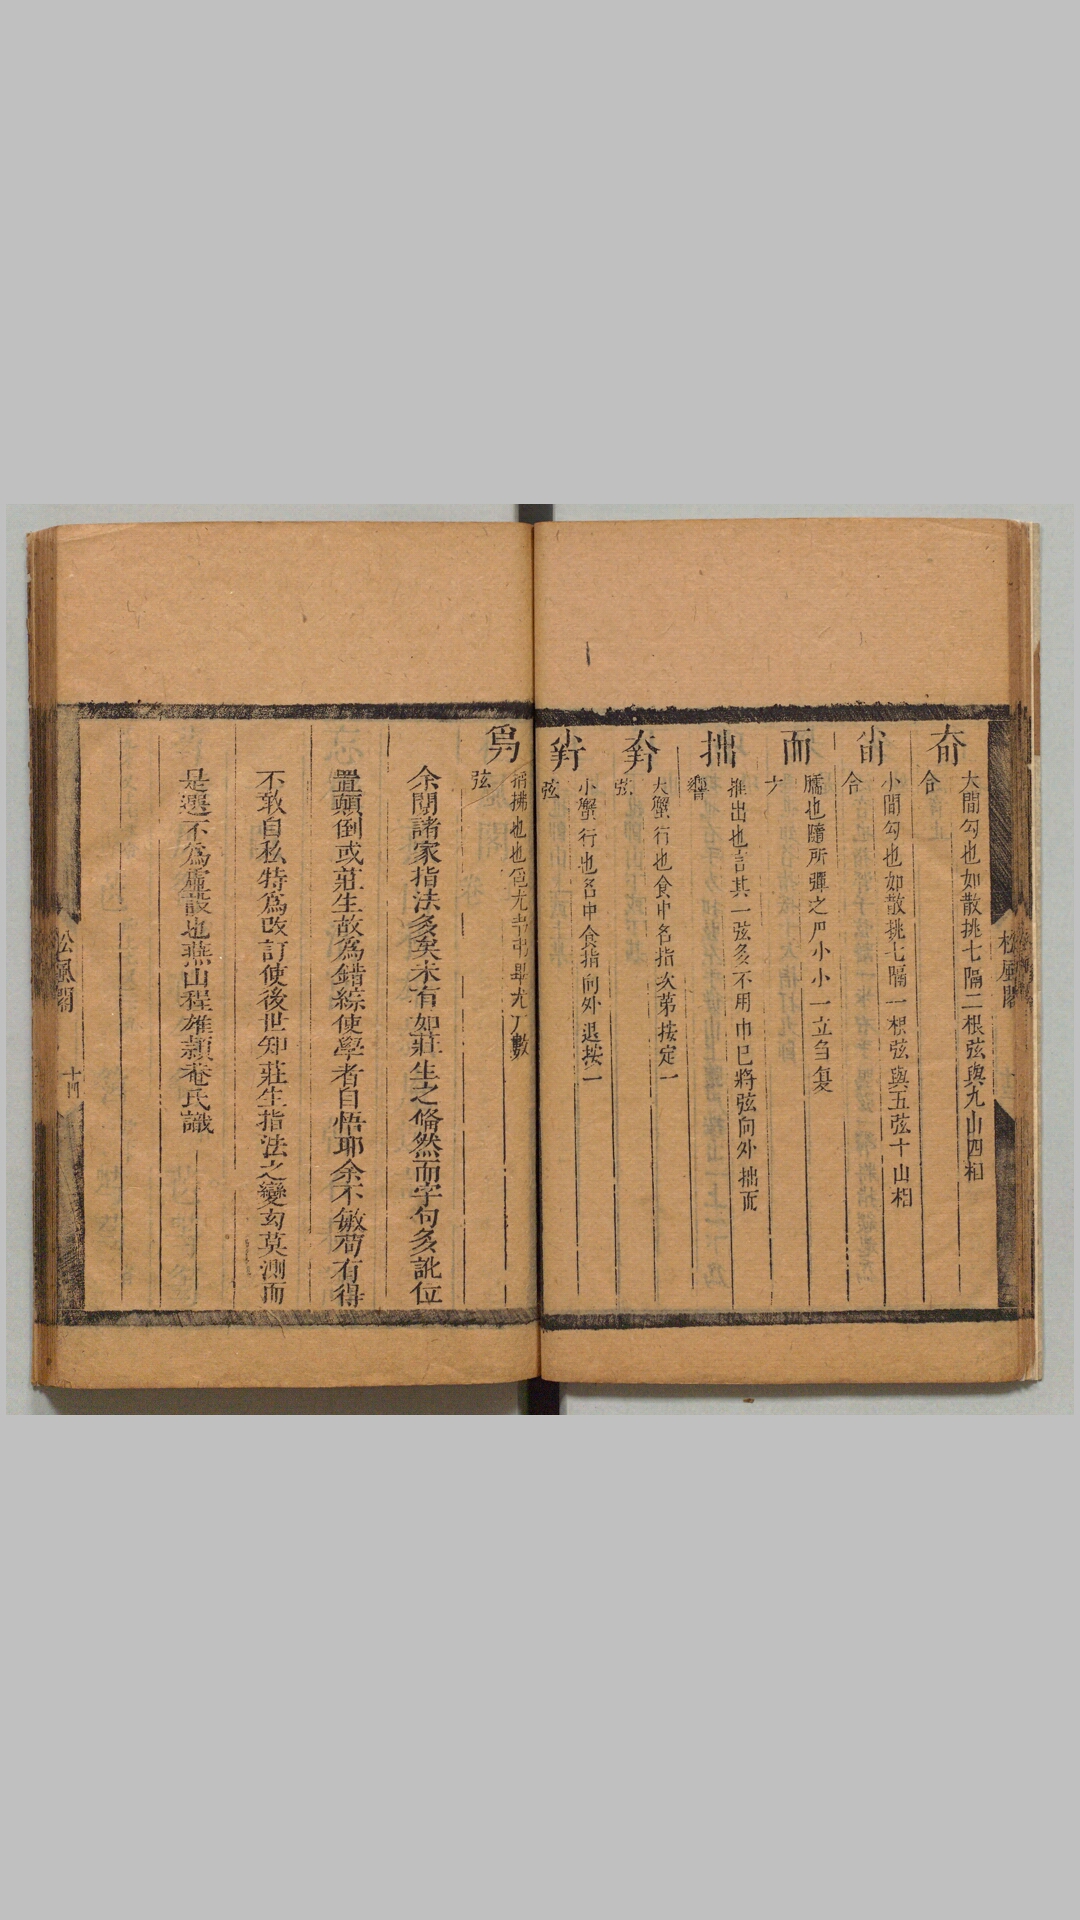 大間勾也如散挑七隔二根弦與九山四相
合
小間勾也如散挑七隔一根弦與五弦十山相
合
而
臑也隨所彈之尸小小一立刍复
六
拙
推出也言其一弦多不用巾巳將弦向外拙而
響
大蟹行也食中名指次第按定一
弦
小蟹行也名中食指向外退按一
弦
數
弦
余閱諸家指法多矣未有如莊生之翛然而字句多訛位
置顛倒或莊生故為錯綜使學者自悟耶余不敏茍有得
不敢自私特為改訂使後世知莊生指法之變幻莫測而
是選不為虛設也燕山程雄頴菴氏識
松風閣
十四
松風閣